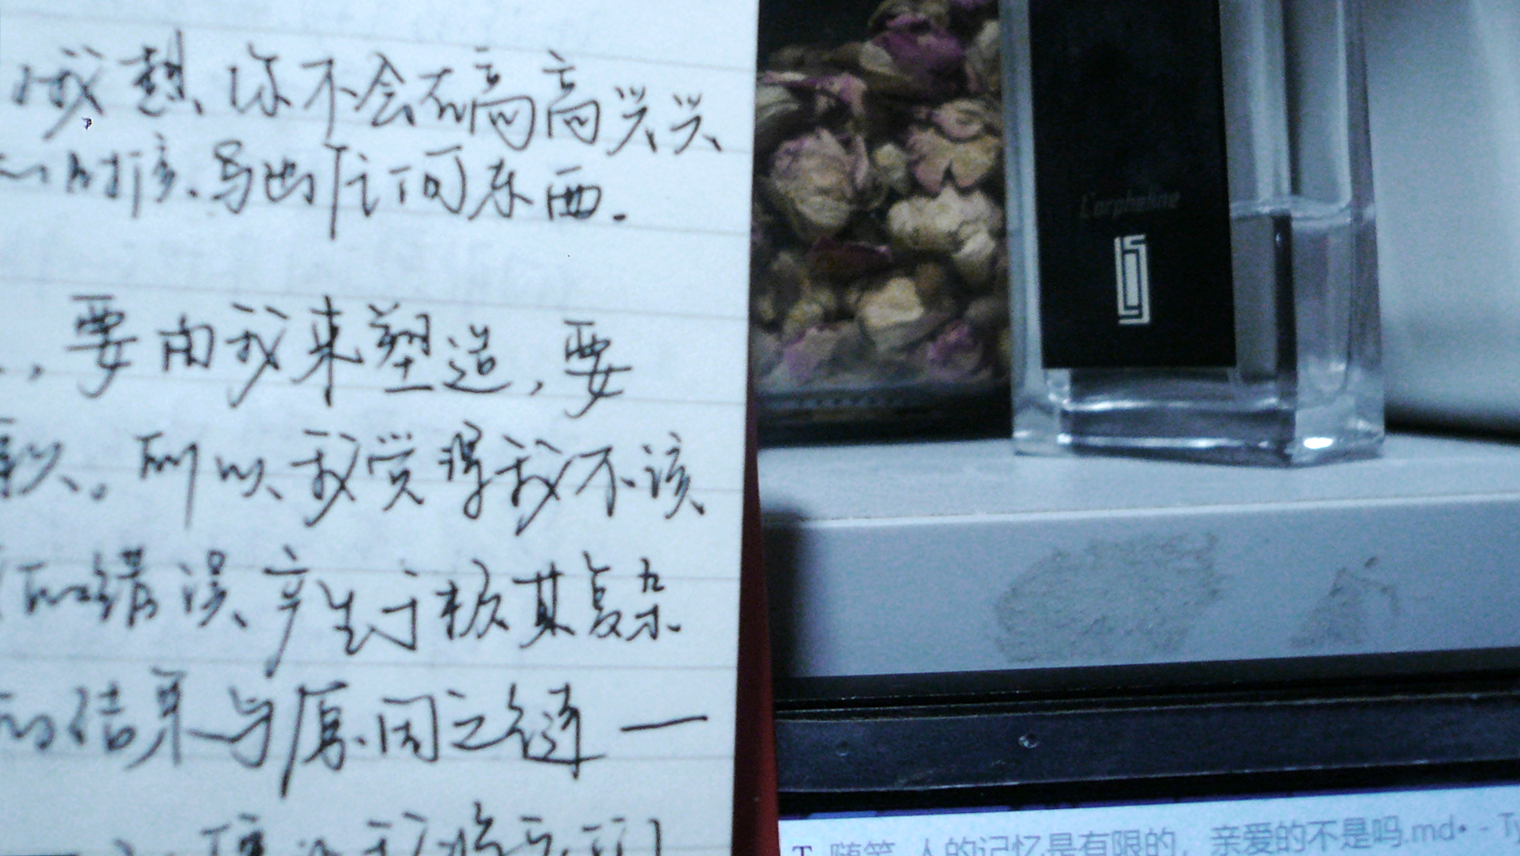 我想,你不会在高高兴兴
的时候写出任何东西.
,要由我来塑造,要
歉。所以我觉得我不该
的错误产生于极其复杂
的结果与原因之链一
L'orpheline
随笔 人的记忆是有限的，亲爱的不是吗.md• - Ty